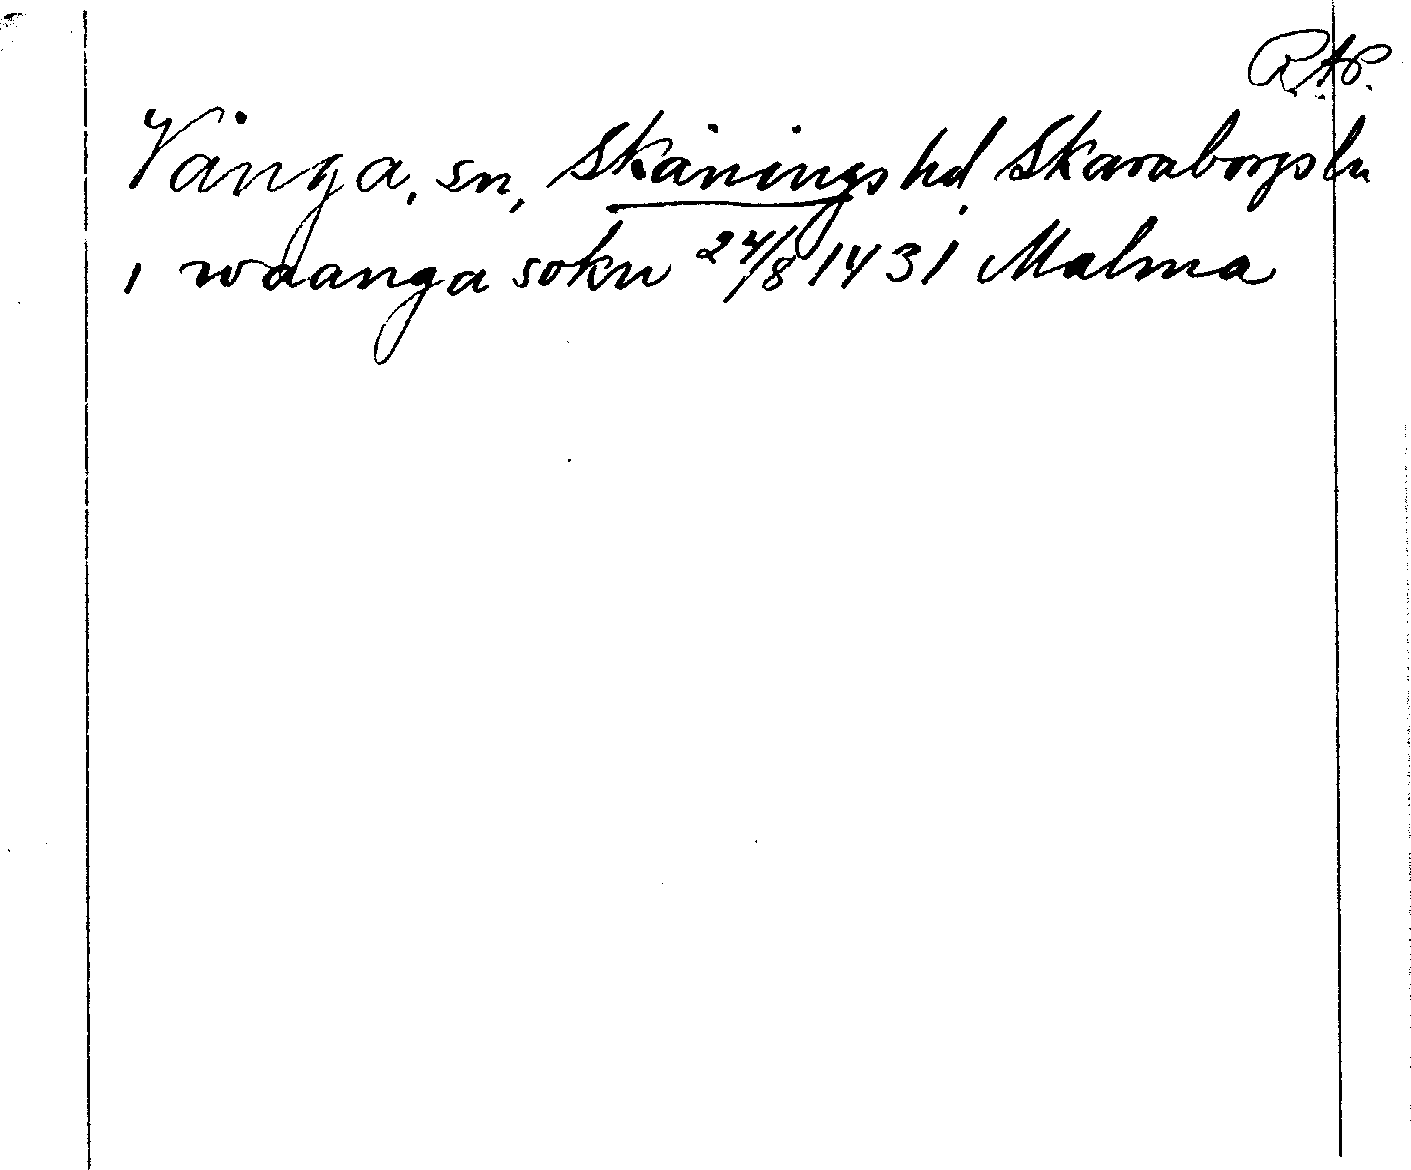 R.A.P.
Vånga, sn, Skånings hd Skaraborgs ln
i waanga sokn 24/8 1431 Malma